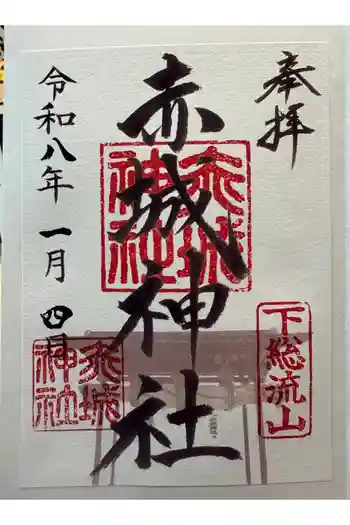 奉拝
下総流山
赤城神社
赤城
神社
令和八年 一月 四日
赤城
神社